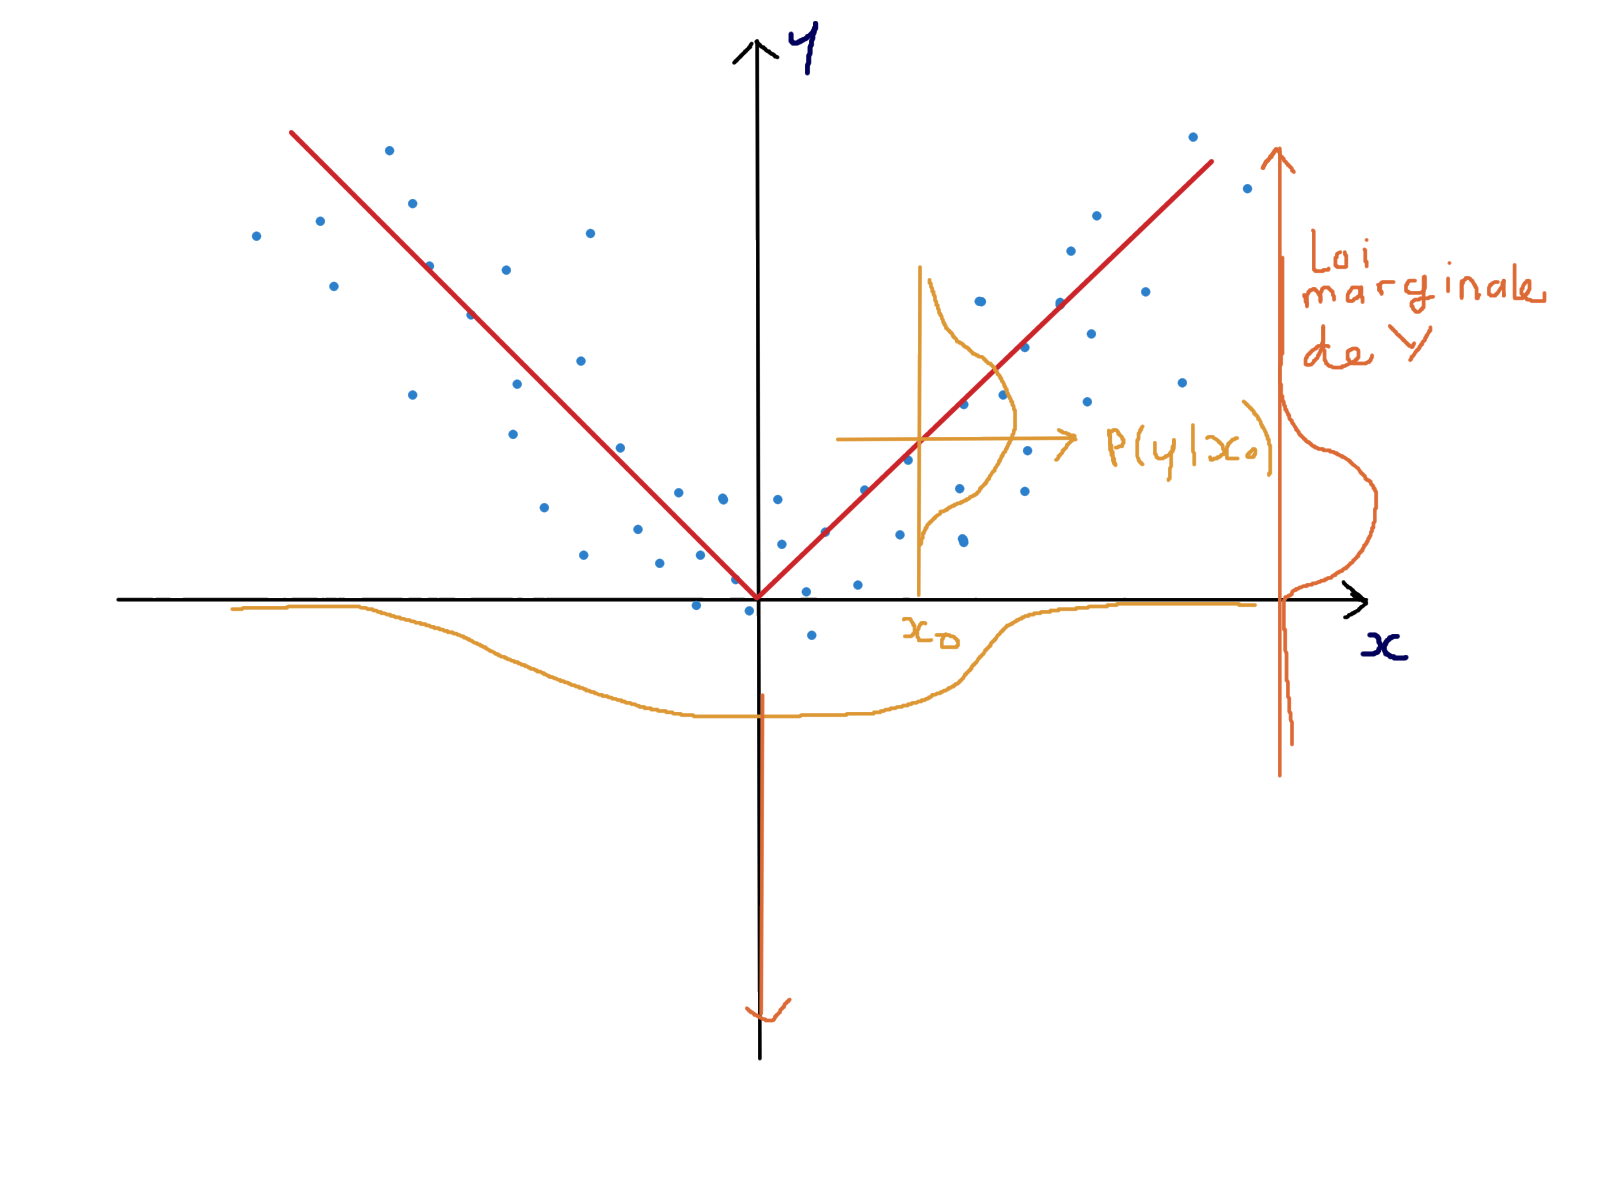 y
Loi
marginale
de Y
P(y|x₀)
x₀
x